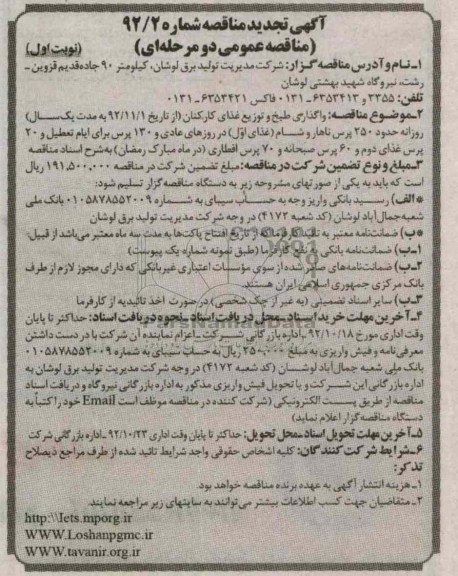 آگهی تجدید مناقصه شماره ۹۲/۲
(مناقصه عمومی دو مرحله‌ای)
(نوبت اول)
۱ـ نام و آدرس مناقصه گزار: شرکت مدیریت تولید برق لوشان، کیلومتر ۹۰ جاده قدیم قزوین ـ
رشت، نیروگاه شهید بهشتی لوشان
تلفن: ۳۳۵۵ و ۶۳۵۳۴۱۳ ـ ۰۱۳۱ فاکس ۶۳۵۳۴۲۱ ـ ۰۱۳۱
۲ـ موضوع مناقصه: واگذاری طبخ و توزیع غذای کارکنان (از تاریخ ۹۲/۱۱/۱ به مدت یک‌سال)
روزانه حدود ۲۵۰ پرس ناهار و شام (غذای اول) در روزهای عادی و ۱۳۰ پرس برای ایام تعطیل و ۲۰
پرس غذای دوم و ۶۰ پرس صبحانه و ۷۰ پرس افطاری (در ماه مبارک رمضان) به‌شرح اسناد مناقصه
۳ـ مبلغ و نوع تضمین شرکت در مناقصه: مبلغ تضمین شرکت در مناقصه ۱۹۱،۵۰۰،۰۰۰ ریال
است که باید به یکی از صورتهای مشروحه زیر به دستگاه مناقصه‌گزار تسلیم شود:
*الف) رسید بانکی واریز وجه به حساب سیبای به شماره ۰۱۰۵۸۷۸۵۵۲۰۰۹ بانک ملی
شعبه جمال‌آباد لوشان (کد شعبه ۴۱۷۲) در وجه شرکت مدیریت تولید برق لوشان
*ب) ضمانت‌نامه معتبر به نفع کارفرما که از تاریخ افتتاح پاکت‌ها به مدت سه ماه معتبر می‌باشد از قبیل:
۱ـ ب) ضمانت‌نامه بانکی به نفع کارفرما (طبق نمونه شماره یک پیوست)
۲ـ ب) ضمانت‌نامه‌های صادر شده از سوی مؤسسات اعتباری غیربانکی که دارای مجوز لازم از طرف
بانک مرکزی جمهوری اسلامی ایران هستند.
۳ـ ب) سایر اسناد تضمینی (به غیر از چک شخصی) در صورت اخذ تائیدیه از کارفرما
۴ـ آخرین مهلت خرید اسناد ـ محل دریافت اسناد ـ نحوه دریافت اسناد: حداکثر تا پایان
وقت اداری مورخ ۹۲/۱۰/۱۸ ـ اداره بازرگانی شرکت ـ اعزام نماینده آن شرکت با در دست داشتن
معرفی‌نامه و فیش واریزی به مبلغ ۲۵۰،۰۰۰ ریال به حساب سیبای به شماره ۰۱۰۵۸۷۸۵۵۲۰۰۹
بانک ملی شعبه جمال آباد لوشان (کد شعبه ۴۱۷۲) در وجه شرکت مدیریت تولید برق لوشان به
اداره بازرگانی این شرکت و با تحویل فیش واریزی مذکور به اداره بازرگانی نیروگاه و دریافت اسناد
مناقصه از طریق پست الکترونیکی (شرکت کننده در مناقصه موظف است Email خود را کتباً به
دستگاه مناقصه‌گزار اعلام نماید)
۵ـ آخرین مهلت تحویل اسناد ـ محل تحویل: حداکثر تا پایان وقت اداری ۹۲/۱۰/۲۳ ـ اداره بازرگانی شرکت
۶ـ شرایط شرکت کنندگان: کلیه اشخاص حقوقی واجد شرایط تائید شده از طرف مراجع ذیصلاح
تذکر:
۱ـ هزینه انتشار آگهی به عهده برنده مناقصه خواهد بود.
۲ـ متقاضیان جهت کسب اطلاعات بیشتر می‌توانند به سایتهای زیر مراجعه نمایند.
http:\\Iets.mporg.ir
WWW.Loshanpgmc.ir
WWW.tavanir.org.ir